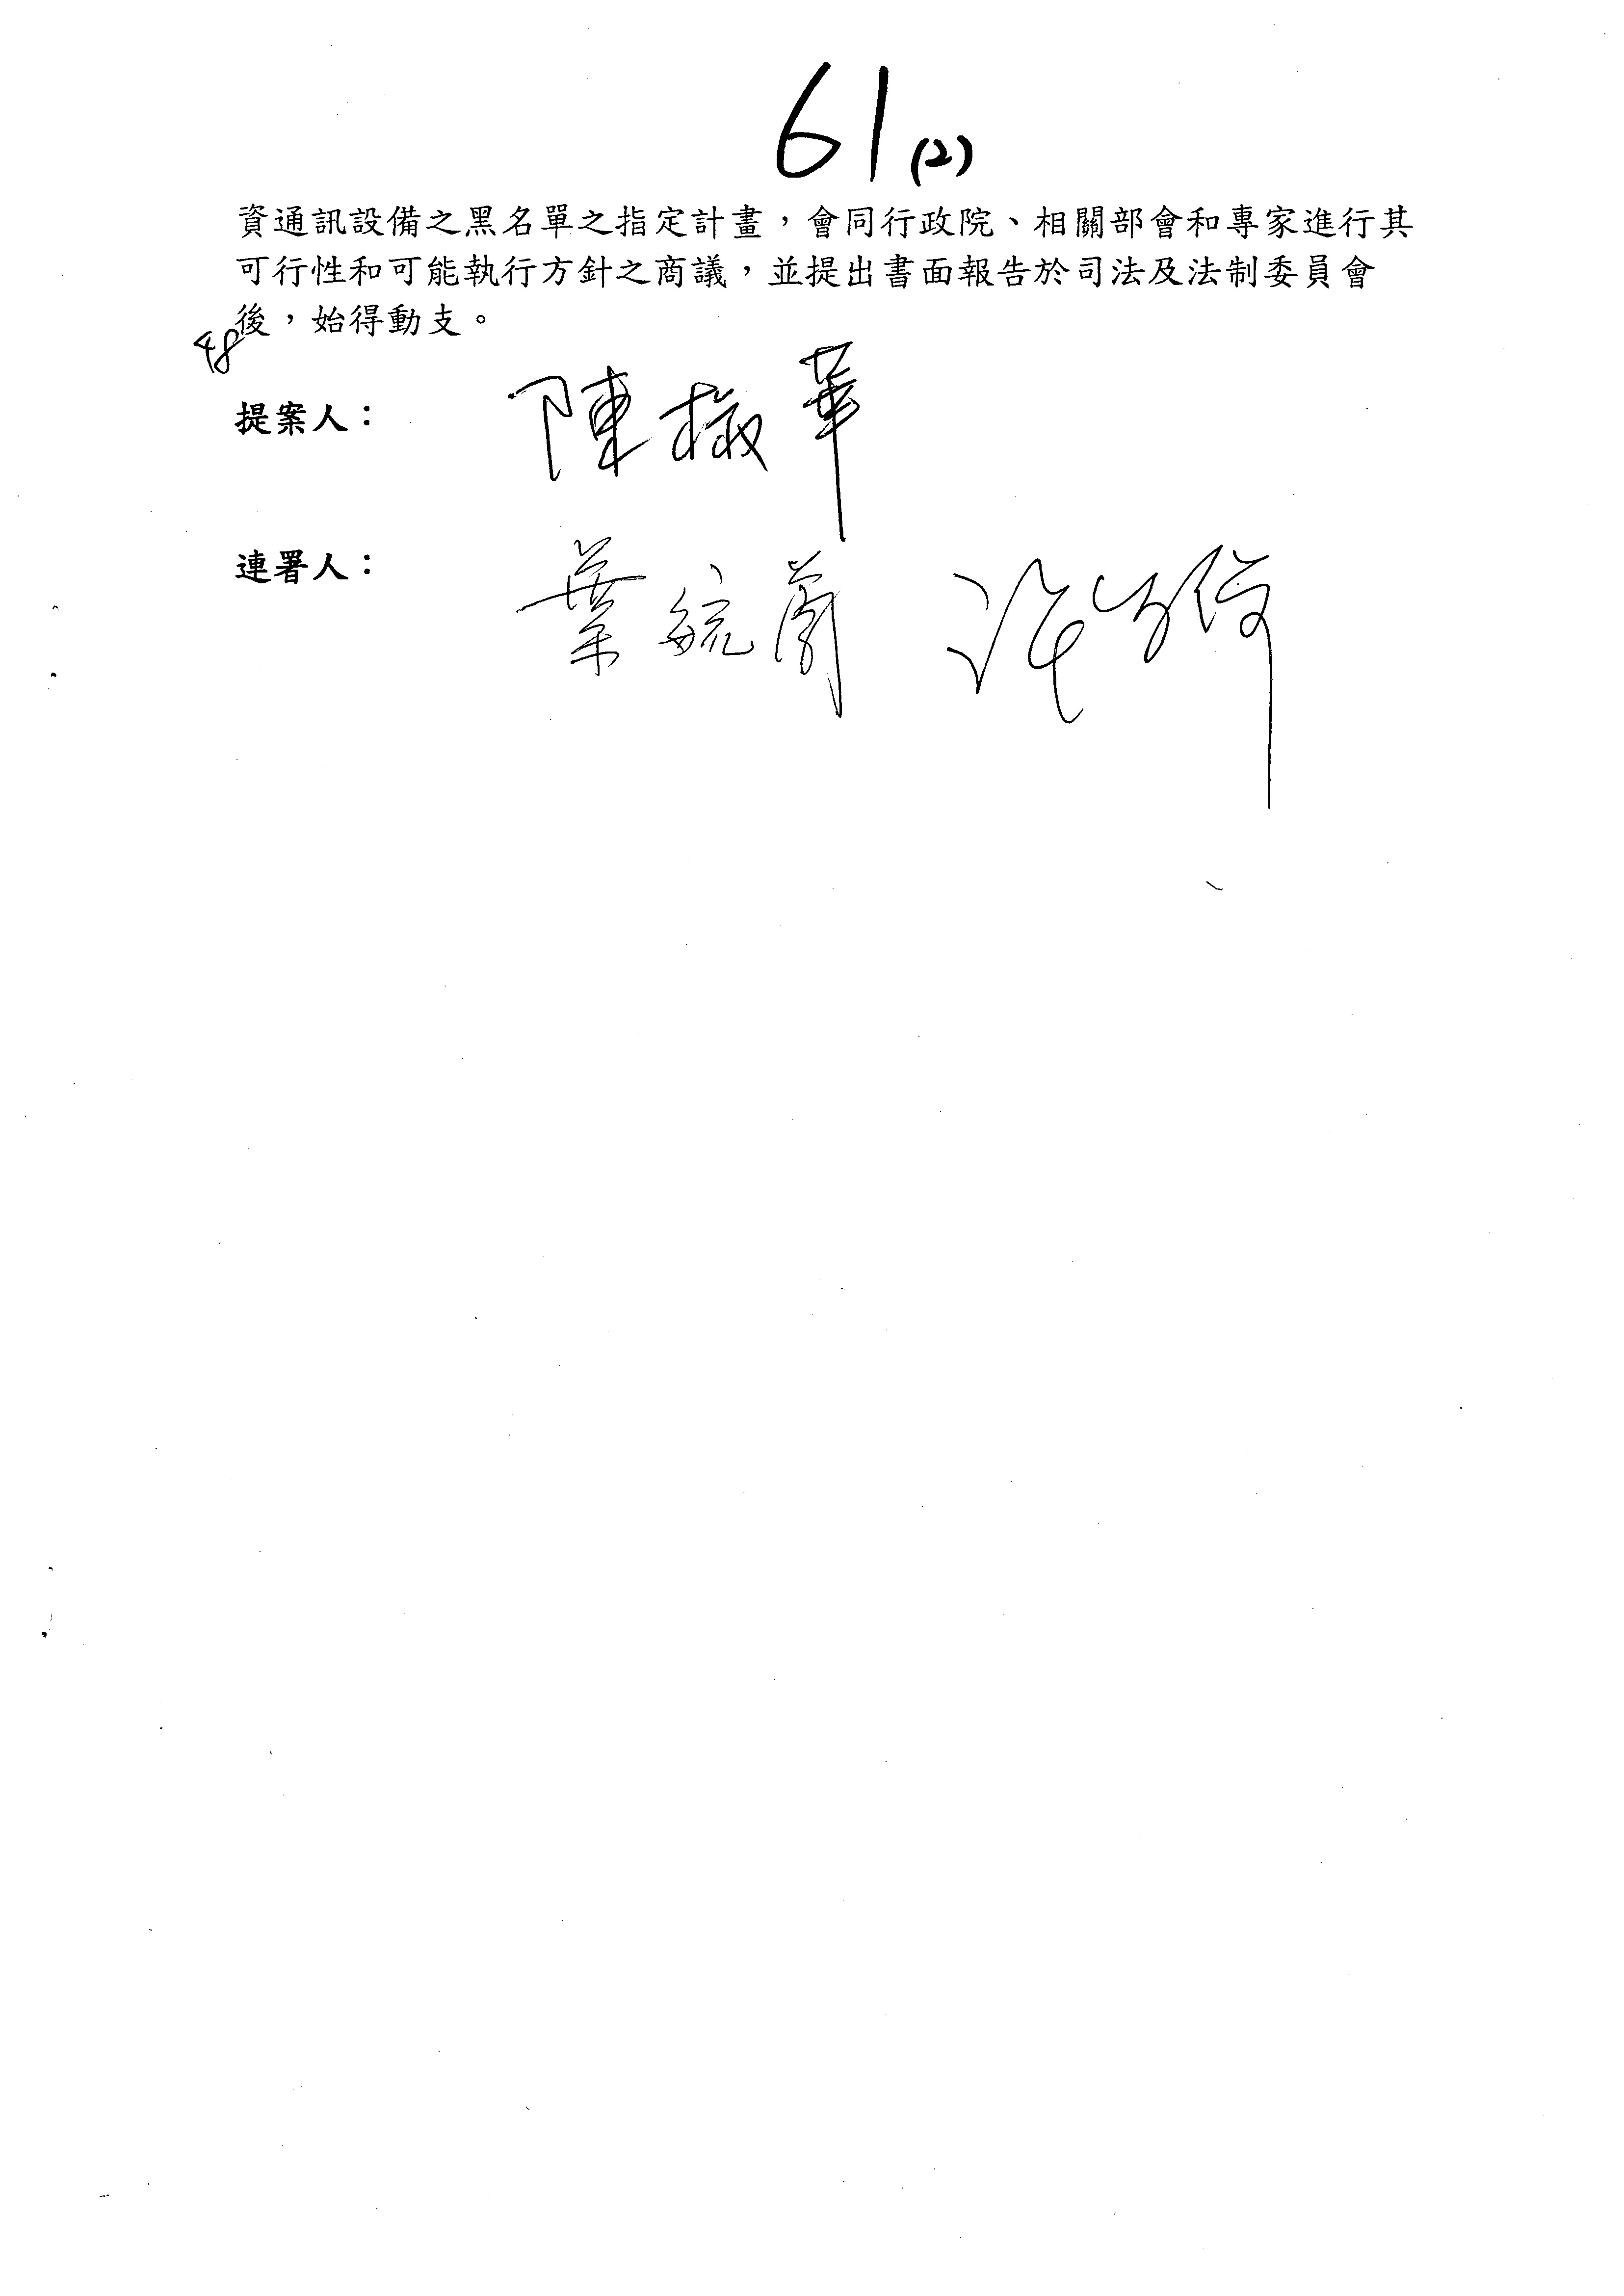 61(2)
資通訊設備之黑名單之指定計畫，會同行政院、相關部會和專家進行其
可行性和可能執行方針之商議，並提出書面報告於司法及法制委員會
後，始得動支。
48
提案人： 陳椒華
連署人： 葉毓蘭